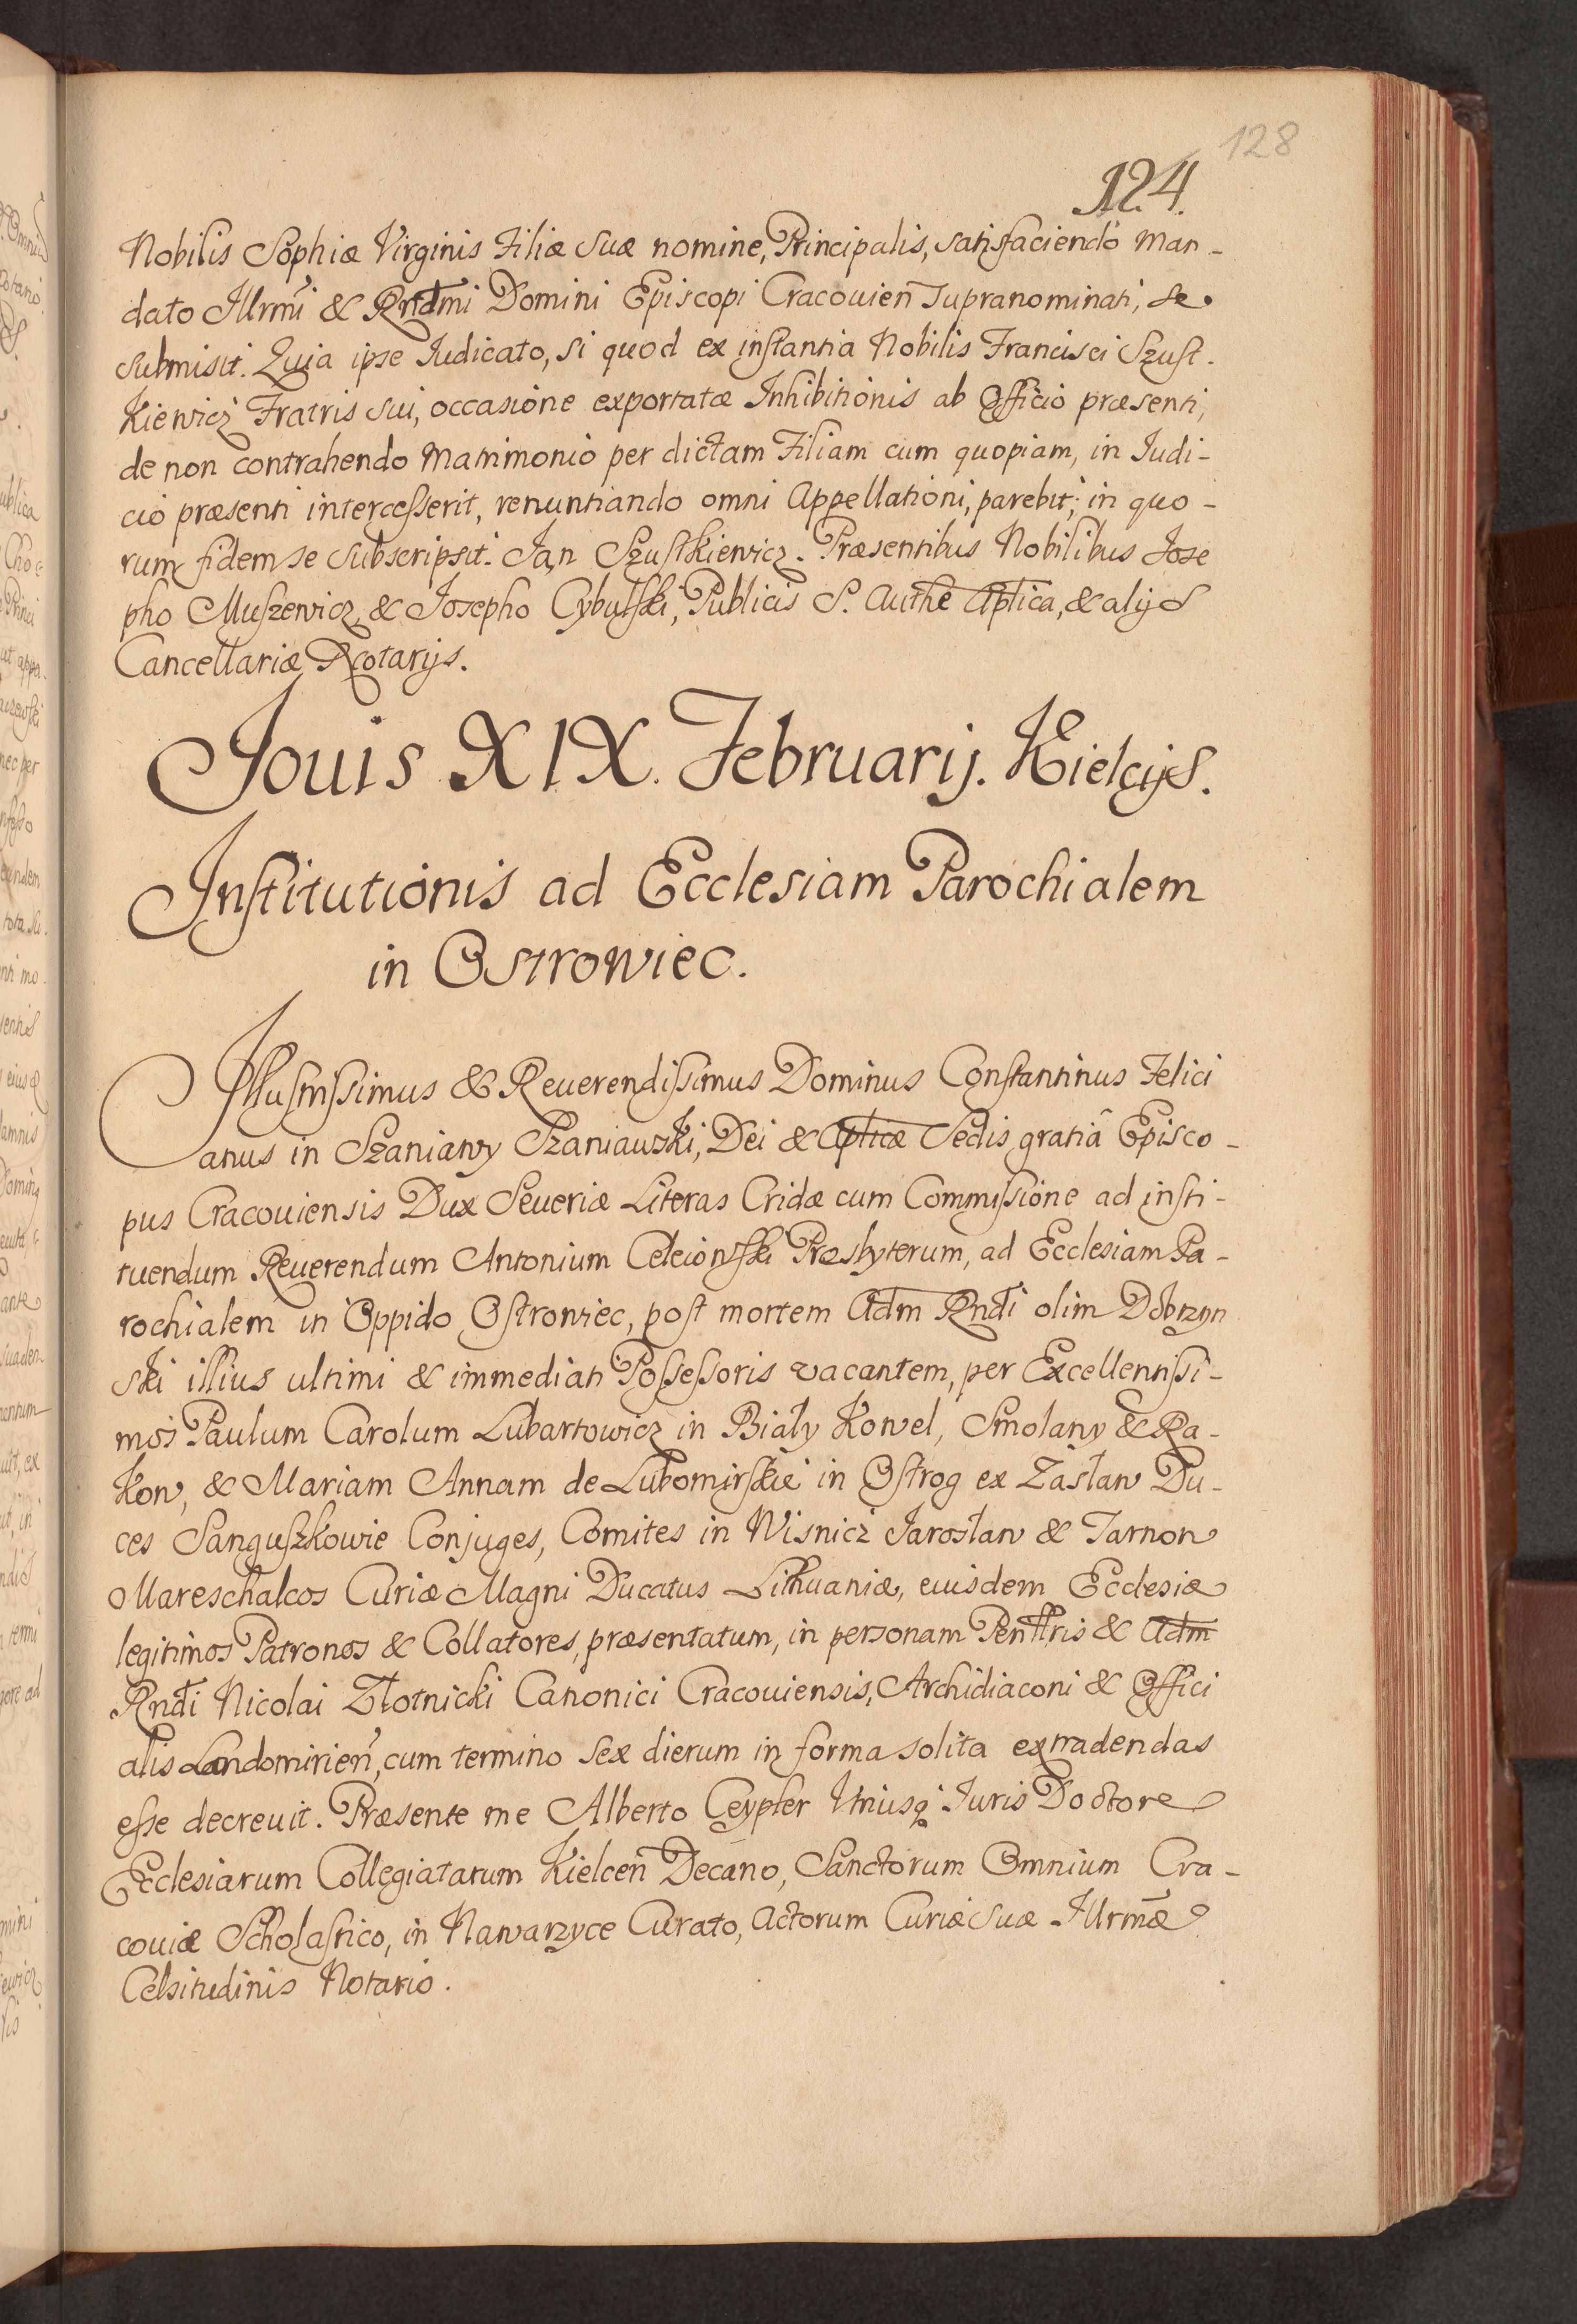 128
124.
Nobilis Sophiæ Virginis Filiæ suæ nomine, Principalis, satisfaciendo man-
dato Illrmi & Rndmi Domini Episcopi Cracouien supranominati, se
submisit. Quia ipse Iudicato, si quod ex instantia Nobilis Francisci Szust-
kiewicz Fratris sui, occasione exportatæ Inhibitionis ab Officio præsenti,
de non contrahendo Matrimonio per dictam Filiam cum quopiam, in Iudi-
cio præsenti intercesserit, renuntiando omni Appellationi, parebit; in quo-
rum fidem se subscripsit. Jan Szustkiewicz. Præsentibus Nobilibus Jose
pho Muszewicz & Josepho Cybulski, Publicis S. Authe Aptica, & alijs
Cancellariæ Notarijs.
Jouis XIX. Februarij. Kielcijs.
Institutionis ad Ecclesiam Parochialem
in Ostrowiec.
Illustrissimus & Reuerendissimus Dominus Constantinus Felici
anus in Szaniawy Szaniawski, Dei & Apticæ Sedis gratiâ Episco-
pus Cracouiensis Dux Seueriæ Literas Cridæ cum Commissione ad insti-
tuendum Reuerendum Antonium Presbyterum, ad Ecclesiam Pa-
rochialem in Oppido Ostrowiec, post mortem Adm Rndi olim Dobrzyn
ski illius ultimi & immediati Possessoris vacantem, per Excellentissi-
mos Paulum Carolum Lubartowicz in Biały Kowel, Smolany & Ra-
kow, & Mariam Annam de Lubomirskie in Ostrog ex Zasław Du-
ces Sanguszkowie Conjuges, Comites in Wisnicz Jarosław & Tarnow
Mareschalcos Curiæ Magni Ducatus Lithuaniæ, eiusdem Ecclesiæ
legitimos Patronos & Collatores, præsentatum, in personam Penttris & Adm
Rndi Nicolai Złotnicki Canonici Cracouiensis, Archidiaconi & Offici
alis Sandomirien, cum termino sex dierum in forma solita extradendas
esse decreuit. Præsente me Alberto Ceypler Utriusq Iuris Doctore
Ecclesiarum Collegiatarum Kielcen Decano, Sanctorum Omnium Cra-
couiæ Scholastico, in Nawarzyce Curato, Actorum Curiæ suæ Illrmæ
Celsitudinis Notario.